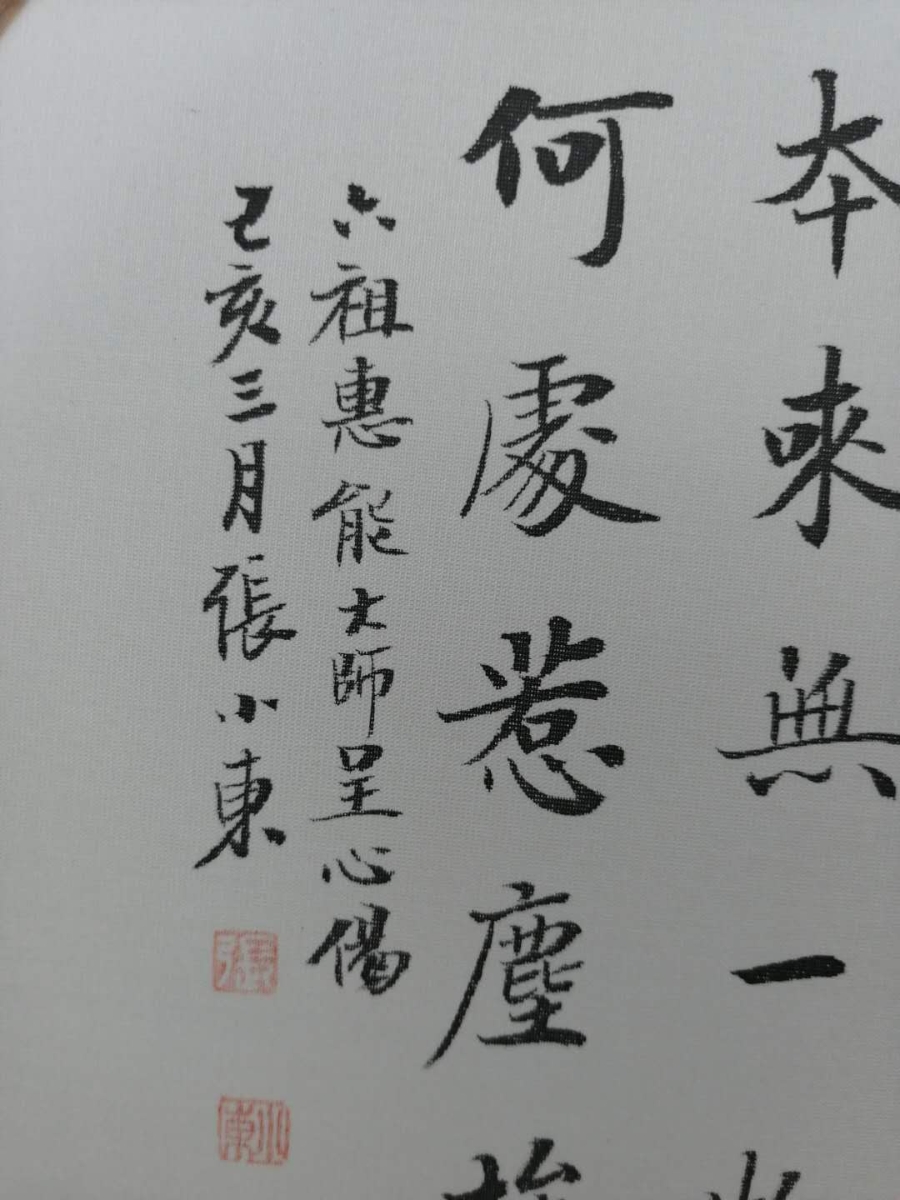 本來無一
何處惹塵
六祖惠能大師呈心偈
己亥三月張小東
張
小東